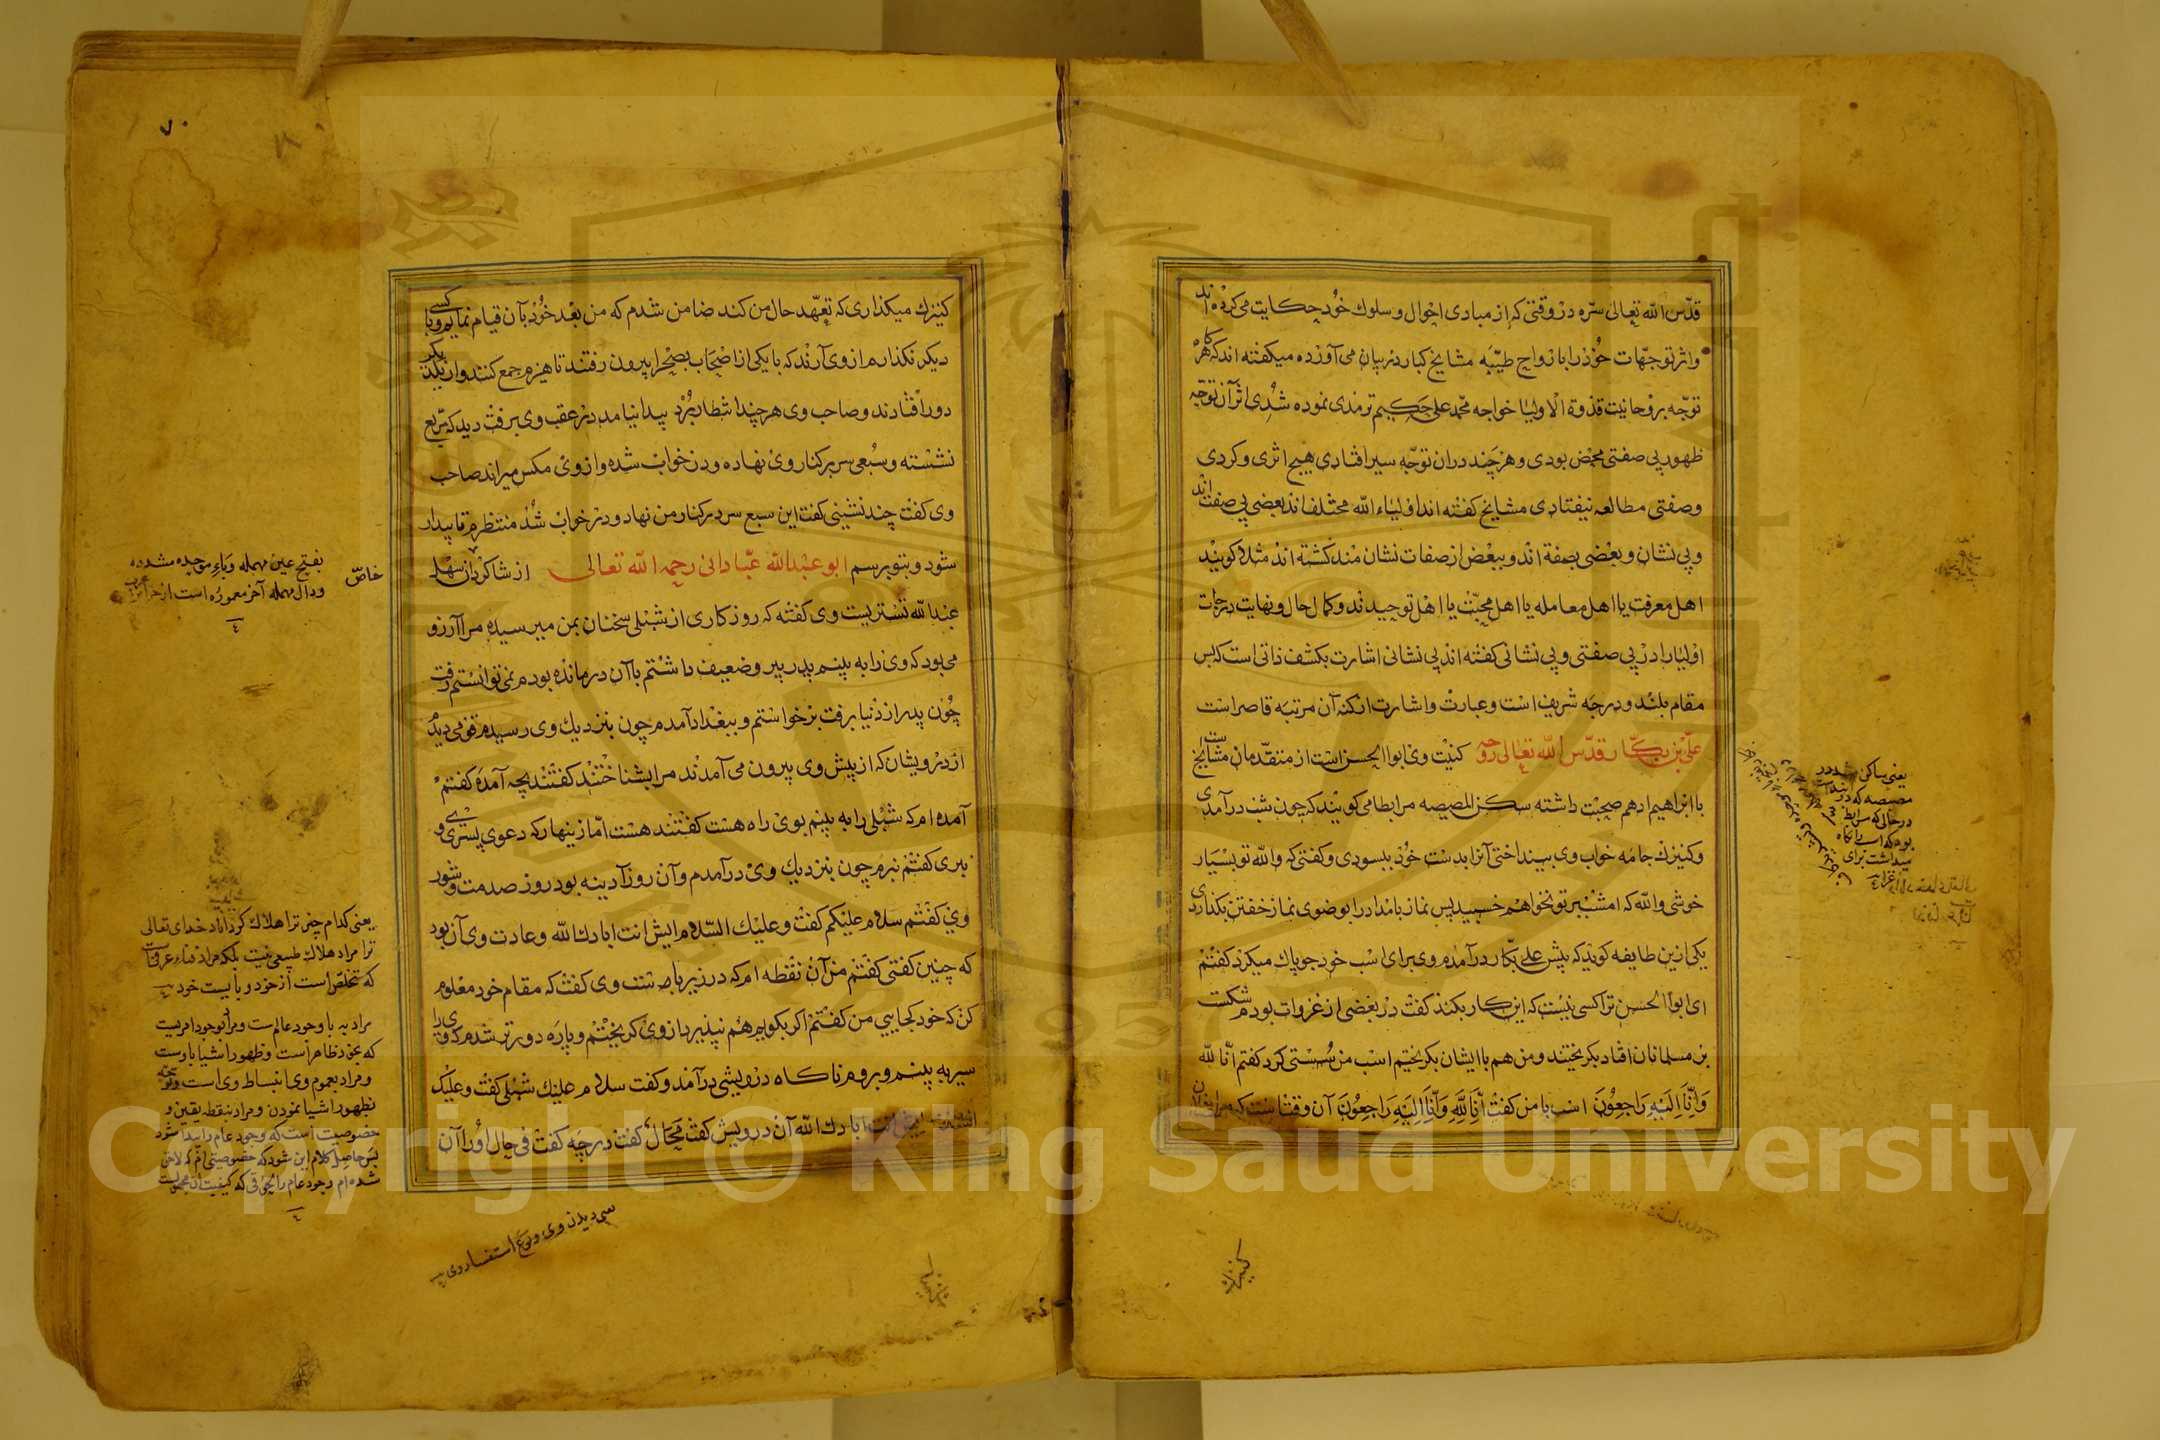 قدّس الله تعالی سرّه در وقتی که از مبادی احوال و سلوک خود حکایت می کرده اند
و اثر توجّهات خود را با ارواح طیّبه مشایخ کبار در بیان می آورده میگفته اند که هرگاه
توجّه بروحانیت قدوة الاولیا خواجه محمد علی حکیم ترمدی نموده شدی اثر آن توجّه
ظهور بی صفتی محض بودی و هرچند در آن توجّه سیر افتادی هیچ اثری و گردی
و صفتی مطالعه نیفتادی مشایخ گفته اند اولیاء الله مختلفند بعضی بی صفت اند
و بی نشان و بعضی بصفة اند و ببعض از صفات نشان مند گشته اند مثلا گویند
اهل معرفت یا اهل معامله یا اهل محبّت یا اهل توحیدند و کمال حال و نهایت درجات
اولیا را در بی صفتی و بی نشانی گفته اند بی نشانی اشارت بکشف ذاتی است که بس
مقام بلند و درجه شریف است و عبارت و اشارت از کنه آن مرتبه قاصر است
علی بن بکّار قدّس الله تعالی روحه کنیت وی ابو الحسن است از متقدّمان مشایخ است
با ابراهیم ادهم صحبت داشته سکن المصیصه مرابطا می گویند که چون شب در آمدی
و کنیزک جامه خواب وی بینداختی آنرا بدست خود ببسودی و گفتی که والله تو بسیار
خوشی والله که امشب بر تو نخواهم خسپید پس نماز بامداد را بوضوی نماز خفتن بگذاردی
یکی ازین طایفه گوید که پیش علی بکّار در آمدم وی برای اسب خود جو پاک میکرد گفتم
ای ابو الحسن ترا کسی نیست که این کار بکند گفت در بعضی از غزوات بودم شکست
بر مسلمانان افتاد بگریختند و من هم با ایشان بگریختم اسب من سستی کرد گفتم انّا لله
وانّا الیه راجعون اسب با من گفت انّا لله وانّا الیه راجعون آن وقتاست که مرا بفلان
کنیزک
۷۰
کنیزک میگذاری که تعهّد حال من کند ضامن شدم که من بعد خود بآن قیام نمایم و با کسی
دیگر نگذارم از وی آرند که با یکی از اصحاب بصحرا بیرون رفتند تا هیزم جمع کنند و از یکدیگر
دور افتادند و صاحب وی هرچند انتظار برد پیدا نیامد در عقب وی برفت دید که مربّع
نشسته و سبعی سر بر کنار وی نهاده و در خواب شده و از وی مکس میراند صاحب
وی گفت چند نشینی گفت این سبع سر در کنار من نهاد و در خواب شد منتظرم تا بیدار
شود و بتو برسم ابو عبدالله عبّادانی رحمه الله تعالی از شاگردان سهل
عبدالله تستریست وی گفته که روزکاری از شبلی سخنان بمن میرسید مرا آرزو
می بود که وی را به بینم پدر پیر و ضعیف داشتم باآن در مانده بودم نمی توانستم رفت
چون پدر از دنیا برفت برخواستم و ببغداد آمدم چون بنزدیک وی رسیدم قومی دیدم
از درویشان که از پیش وی بیرون می آمدند مرا بشناختند گفتند بچه آمده گفتم
آمده ام که شبلی را به بینم بوی راه هست گفتند هست امّا زینهار که دعوی پیش وی
نبری گفتم نبرم چون بنزدیک وی در آمدم و آن روز آدینه بود روز صدمت و شور
وی گفتم سلام علیکم گفت و علیک السّلام ایش انت ابادک الله و عادت وی آن بود
که چنین گفتی گفتم من آن نقطه ام که در زیر با ست وی گفت که مقام خود معلوم
کن که خود کجایی من گفتم اگر بگویم هم نپذیرد از وی گریختم و پاره دورتر شدم که وی را
سیر به بینم و بروم ناگاه درویشی در آمد و گفت سلام علیک شبلی گفت و علیک
السّلام ایش انت ابادک الله آن درویش گفت محال گفت در چه گفت فی حال او را آن
خاصّ
بفتح عین مهمله و باء موحده مشدده
و دال مهمله آخر معموره است از
یعنی کدام چیز ترا هلاک گرداناد خدای تعالی
ترا مراد هلاک طبیعی نیست بلکه مراد فناء عرفانیست
که تخلّص است از خود و با بیست خود
مراد به با وجود عالم ست و مراد بوجود امریست
که بخود ظاهر است و ظهور اشیا باوست
و مراد بعموم وی انبساط وی است و
بظهور اشیا نمودن و مراد بنقطه یقین و
خصوصیت است که وجود عام را پیدا شود
پس حاصل کلام این شود که خصوصیتی ام که لاحق
شده ام وجود عام را
سبب دیدن وی و نوع استفسار وی
یعنی ساکن شد در
مصیصه که در
در حالی که مرابط
بود که اسب نگاه
میداشت برای
غزا